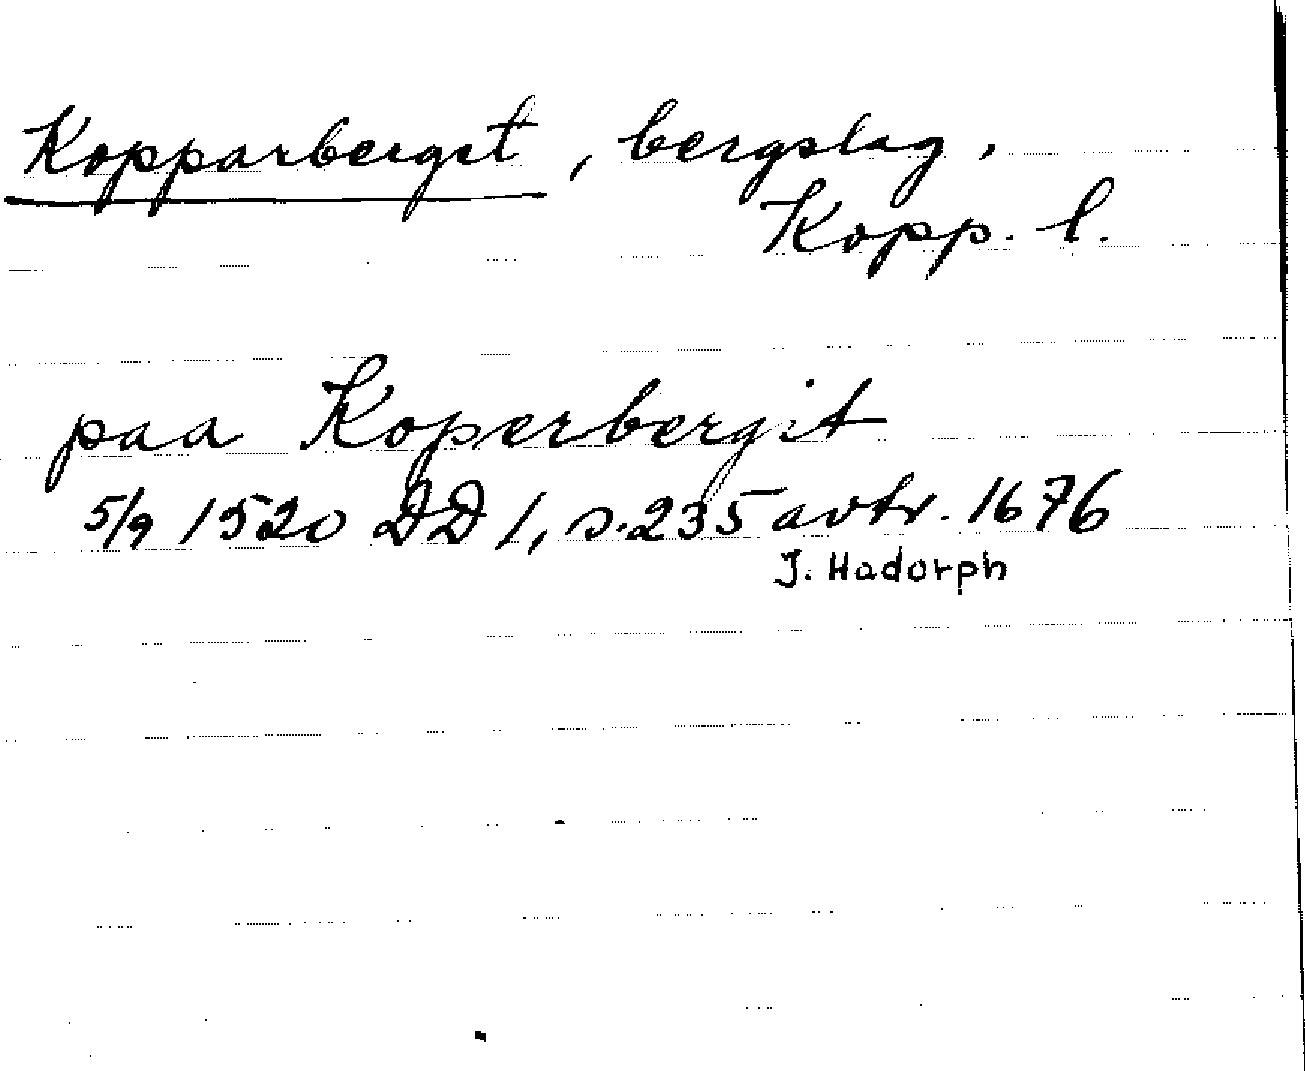 Kopparberget, bergslag,
Kopp. l.
paa Koperbergit
5/9 1520 DD 1, s. 235 avtr. 1676
J. Hadorph